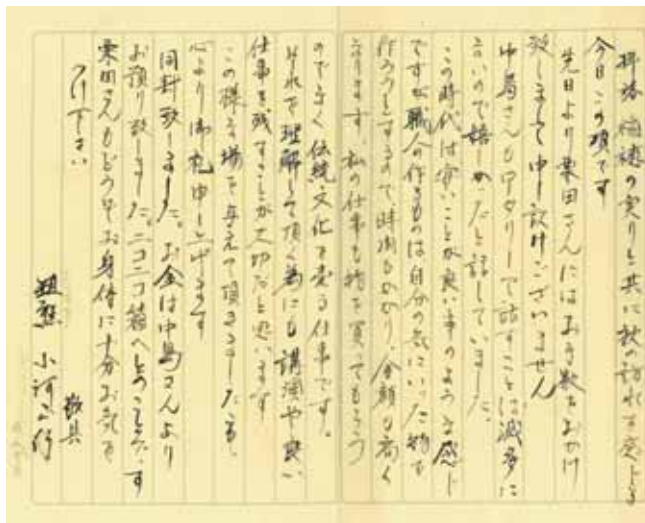 拝啓 稲穂の実りと共に秋の訪れを感じる
今日この頃です
先日より栗田さんにはお手数をおかけ
致しまして申し訳けございません
中島さんも 話すことは滅多に
ないので嬉しかったと話していました。
この時代は安いことが良い事のような感じ
ですが職人の作るものは自分の気にいった物を
作ろうとしますので、時間もかかり、金額も高く
なります 私の仕事も物を買ってもらう
のでなく伝統文化を売る仕事です。
それを理解して頂く為にも講演や良い
仕事を残すことが大切だと思います
この様な場を与えて頂きました事、
心より御礼申し上げます
同封致しました。お金は中島さんより
お預り致しました。ニコニコ箱へとのことです
栗田さんもどうぞお身体に十分お気を
つけ下さい
敬具
小河正行